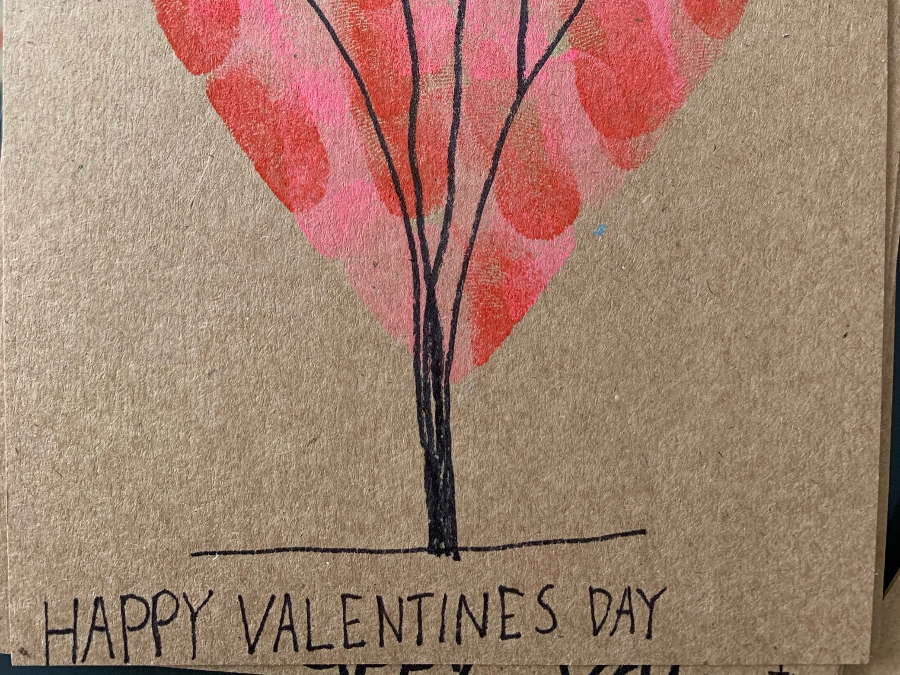 HAPPY VALENTINES DAY